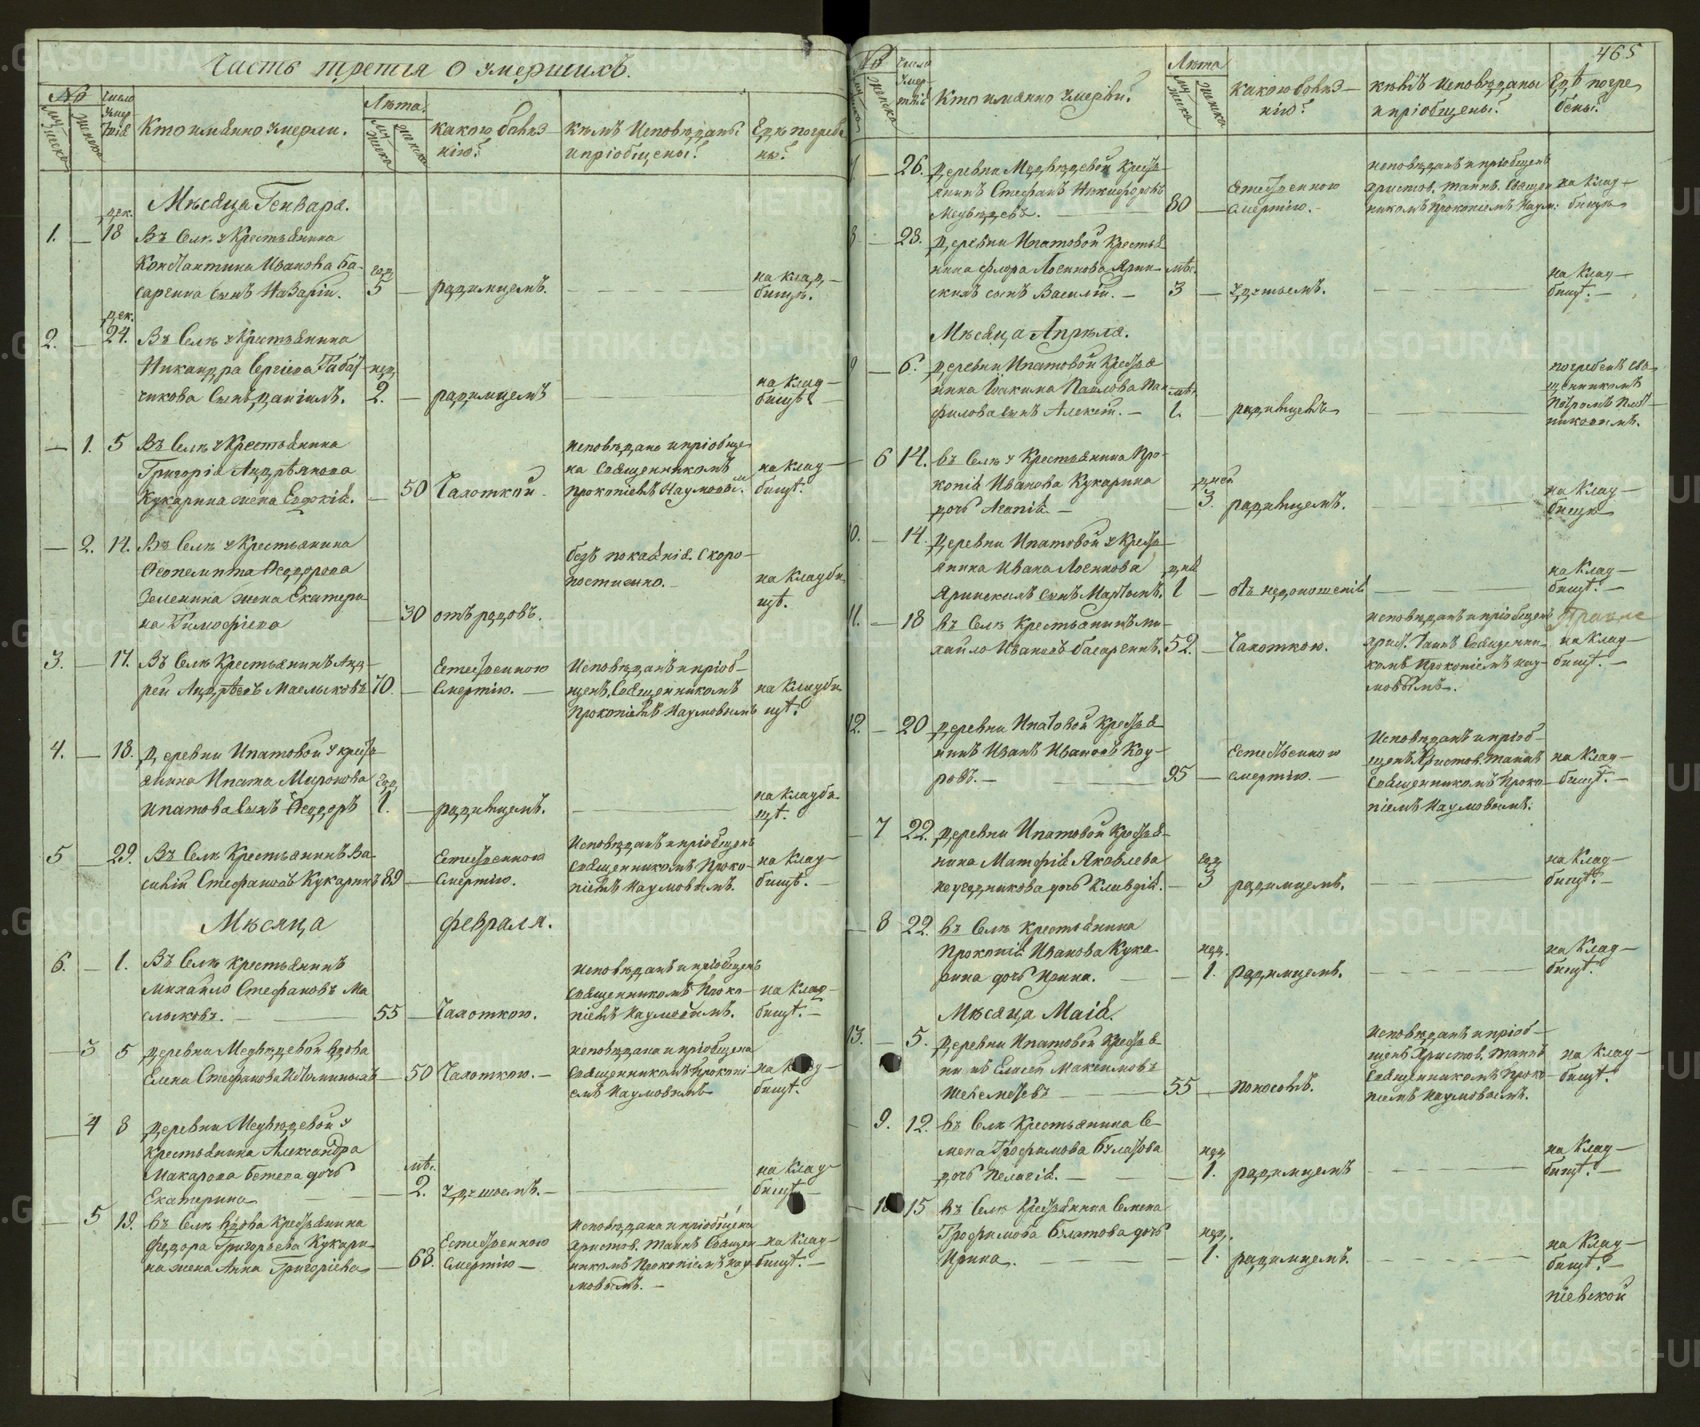 Часть третья о умершихъ.
№
Число умертвія
Лѣта.
Кто имянно умерли.
какою болѣзнію?
кѣмъ исповѣданы и пріобщены?
Гдѣ погребены?
Мѣсяца Генваря.
1. — дек. 18 Въ Селѣ у Крестьянина
Константина Иванова Ба-
саргина сынъ Назарій. год. 5 — родимцемъ. на клад-
бищѣ.
2. — дек. 24. Въ Селѣ у Крестьянина
Никандра Сергіева
сынъ Даніилъ. нед. 2. — родимцемъ на клад-
бищѣ
— 1. 5 Въ Селѣ у Крестьянина
Григорія Андреянова
Кукарина жена Евдокія. — 50 Чахоткой исповѣдана и пріобще-
на Священникомъ
Прокопіемъ Наумовым. на клад-
бищѣ.
— 2. 14. Въ Селѣ у Крестьянина
Ѳеопемпта Ѳеодорова
Зеленина жена Екатери-
на Тимофіева — 30 отъ родовъ. безъ покаянія. Скоро-
постижно. на кладби-
щѣ.
3. — 17. Въ Селѣ Крестьянинъ Анд-
рей Андрѣевъ Маслыковъ 70. — Естественною
Смертію. — Исповѣданъ и пріоб-
щенъ Священникомъ
Прокопіемъ Наумовымъ на кладби-
щѣ.
4. — 18. Деревни Ипатовой у кресть-
янина Ипата Миронова
Ипатова сынъ Ѳеодоръ год. 1. — родимцемъ. на кладби-
щѣ.
5 — 29. Въ Селѣ Крестьянинъ Ва-
силій Стефановъ Кукаринъ 89 — Естественною
Смертію. Исповѣданъ и пріобщенъ
Священникомъ Проко-
піемъ Наумовымъ. на клад-
бищѣ. —
Мѣсяца Февраля.
6. — 1. Въ Селѣ Крестьянинъ
Михайло Стефановъ Ма-
слыковъ. 55 — Чахоткою. исповѣданъ и пріобщенъ
Священникомъ Проко-
піемъ Наумовымъ. на клад-
бищѣ. —
— 3 5 Деревни Медвѣдевой вдова
Елена Стефанова — 50 Чахоткою. — исповѣдана и пріобщена
Священникомъ Прокопі-
емъ Наумовымъ на клад-
бищѣ.
— 4 8 Деревни Медвѣдевой у
Крестьянина Александра
Макарова Бетева дочь
Екатерина — мѣс. 2. удушьемъ. — на клад-
бищѣ —
— 5 19. Въ Селѣ вдова Крестьянина
Федора Григорьева Кукари-
на жена Анна Григоріева — 68. Естественною
Смертію — исповѣдана и пріобщена
Христов. таинъ Священ-
никомъ Прокопіемъ Нау-
мовымъ. — на клад-
бищѣ. —
465
№
Число умертвія
Кто имянно умерли?
Лѣта
какою болѣзнію?
кѣмъ исповѣданы и пріобщены?
Гдѣ погребены?
7 — 26. Деревни Медвѣдевой Кресть-
янинъ Стефанъ Никифоровъ
Медвѣдевъ. 80 — Естественною
смертію. исповѣданъ и пріобщенъ
Христов. таинъ. Священ-
никомъ Прокопіемъ Наум: на клад-
бищѣ
8 — 28. Деревни Ипатовой Крестья-
нина Флора Логинова Ярин-
скихъ сынъ Василій. — мѣс. 3 — удушьемъ. на клад-
бищѣ. —
Мѣсяца Апрѣля.
9 — 6. Деревни Ипатовой Крестья-
нина Іоакима Павлова Пан-
филова сынъ Алексѣй. — мѣс. 1. — родимцемъ погребенъ свя-
щенникомъ
Петромъ Плот-
никовымъ.
— 6 14. въ Селѣ у Крестьянина Про-
копія Иванова Кукарина
дочь Агапія. — дней 3. родимцемъ. на клад-
бищѣ
10. — 14. Деревни Ипатовой у Кресть-
янина Ивана Логинова
Яринскихъ сынъ Мартынъ. дней 1 — отъ недоношенія на клад-
бищѣ. —
11. — 18 въ Селѣ Крестьянинъ Ми-
хайло Ивановъ Басаргинъ. 52. — Чахоткою. исповѣданъ и пріобщенъ
Христ. Таинъ Священни-
комъ Прокопіемъ Нау-
мовымъ. на клад-
бищѣ. —
12. — 20 Деревни Ипатовой Крестья-
нинъ Иванъ Ивановъ Код-
ровъ. — 95 — Естественною
смертію. — Исповѣданъ и пріоб-
щенъ Христов. таинъ
Священникомъ Проко-
піемъ Наумовымъ. на клад-
бищѣ. —
— 7 22. Деревни Ипатовой Крестья-
нина Матфія Яковлева
дочь Клавдія. — год 3 родимцемъ. на клад-
бищѣ. —
— 8 22. въ Селѣ Крестьянина
Прокопія Иванова Кука-
рина дочь Ирина. — нед. 1. родимцемъ. на клад-
бищѣ.
Мѣсяца Маія.
13. — 5. Деревни Ипатовой Крестья-
нинъ Елисей Максимовъ
55 — поносомъ. Исповѣданъ и пріоб-
щенъ Христов. таинъ
Священникомъ Проко-
піемъ Наумовымъ. на клад-
бищѣ.
— 9. 12. въ Селѣ Крестьянина Се-
мена Трофимова Булатова
дочь Пелагія. — нед. 1. родимцемъ на клад-
бищѣ. —
— 10 15 въ Селѣ Крестьянина Семена
Трофимова Булатова дочь
Ирина. нед. 1. родимцемъ. на клад-
бищѣ. —
пѣевской
METRIKI.GASO-URAL.RU